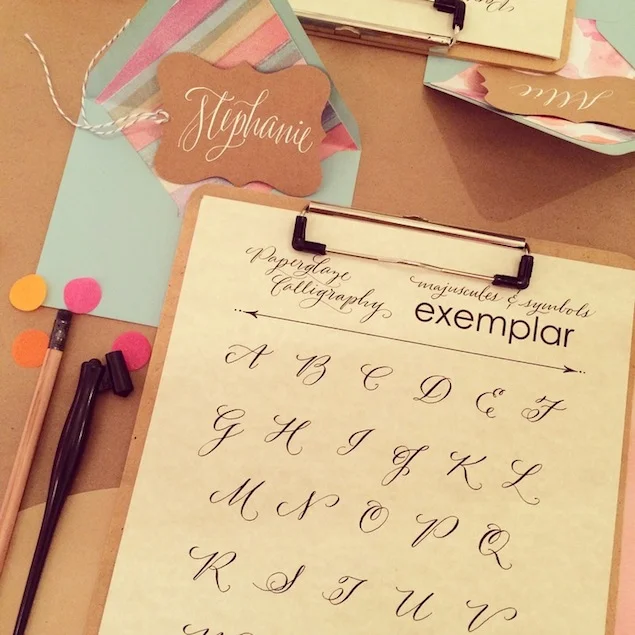 Stephanie
Paperglaze
Calligraphy
majuscules & symbols
exemplar
A B C D E F
G H I J K L
M N O P Q
R S T U V